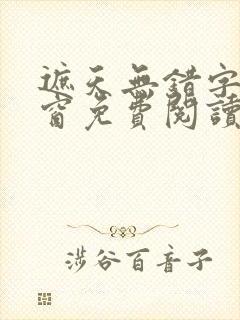 遮天無錯字
窗免費閱讀
澁谷百音子